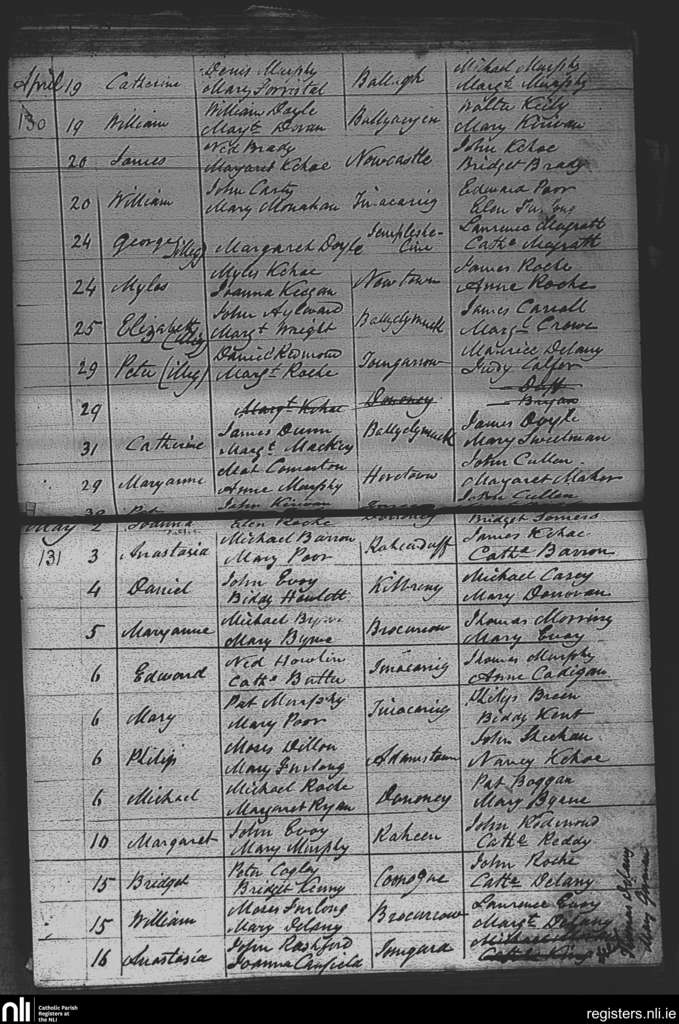 April 19 Catherine Denis Murphy Ballagh Michael Murphy
Mary Forristal Margt. Murphy
130 19 William William Doyle Walter Kiely
Margt. Doran Mary Kirivan
20 James Ned Brady Newcastle John Kehoe
Margaret Kehoe Bridget Brady
20 William John Carty Tinacarig Edward Poor
Mary Monahan Elen Furlong
24 George (illeg) Margaret Doyle Templeshe- Laurence Magrath
line Cathe Magrath
24 Myles Myles Kehoe Newtown James Roche
Joanna Keegan Anne Roche
25 Elizabeth (illeg) John Aylward Ballyclymuck James Carroll
Margt Wright Margt Crowe
29 Peter (illeg) Daniel Redmond Tomgarrow Maurice Delany
Margt. Roche Judy
29 Margt. Kehoe Dononey Duff
Bryan
31 Catherine James Dunn Ballyclymuck James Doyle
Margt. Mackey Mary Sweetman
29 Maryanne Mat Comerton Horetown John Cullen
Anne Murphy Margaret Maher
30 Pat John Kirivan John Cullen
May 2 Joanna Elen Roche Bridget Somers
131 3 Anastasia Michael Barron Raheenduff James Kehoe
Mary Poor Cathe Barron
4 Daniel John Evoy Killreny Michael Casey
Biddy Howlett Mary Donovan
5 Maryanne Michael Byrne Brocurrow Thomas
Mary Byrne Mary Evoy
6 Edward Ned Howlin Tinacarrig Thomas Murphy
Cathe Butler Anne Cadigan
6 Mary Pat Murphy Tinacarrig Philip Breen
Mary Poor Biddy Kent
6 Philip Moses Dillon Adamstown John Sheehan
Mary Furlong Nancy Kehoe
6 Michael Michael Roche Dononey Pat Boggan
Margaret Ryan Mary Byrne
10 Margaret John Evoy Raheen John Redmond
Mary Murphy Cathe Reddy
15 Bridget Peter Cogley Coonogue John Roche
Bridget Kenny Cathe Delany
15 William Moses Furlong Brocurrow Laurence Evoy
Mary Delany Margt Delany
16 Anastasia John Rashford Tomgara Michael
Joanna Canfield
Thomas
Mary
nli Catholic Parish
Registers at
the NLI
registers.nli.ie